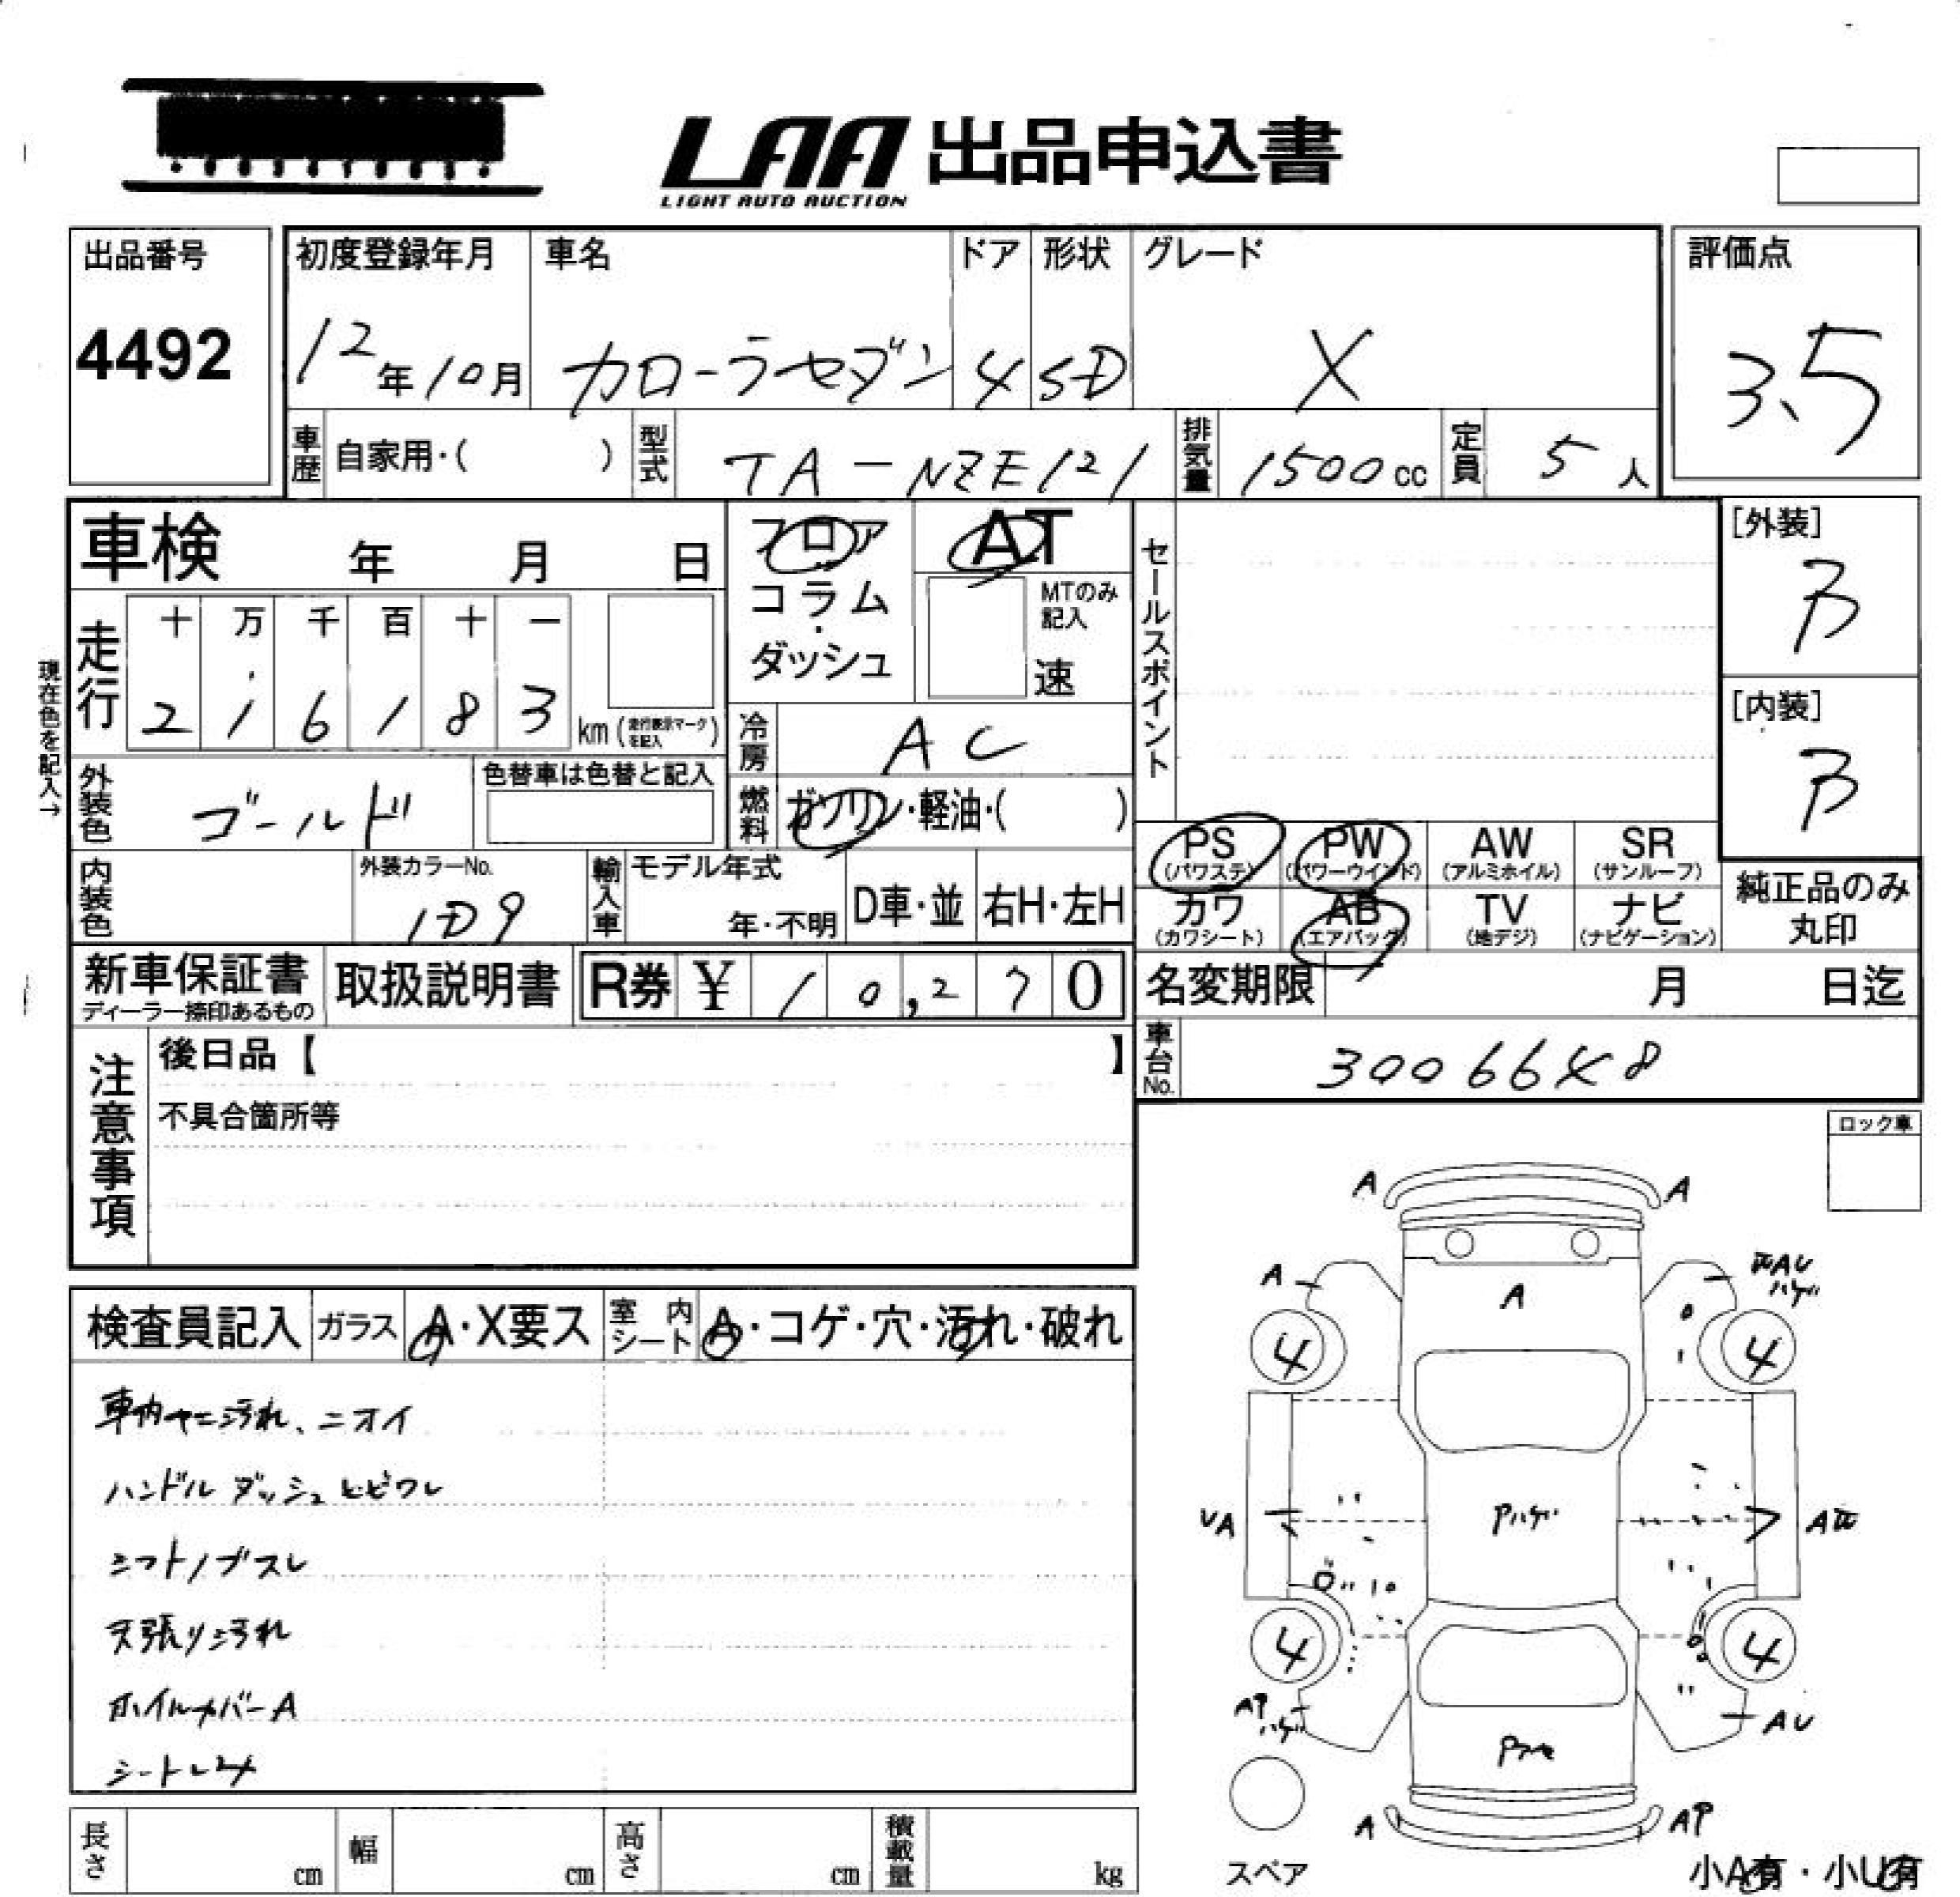 LAA 出品申込書
LIGHT AUTO AUCTION
出品番号
4492
初度登録年月 車名 ドア 形状 グレード
12年10月 カローラセダン 4 SD X
評価点
3.5
車歴 自家用・( ) 型式 TA-NZE121 排気量 1500cc 定員 5人
車検 年 月 日
フロア AT
コラム・ダッシュ
MTのみ記入
速
セールスポイント
[外装]
B
[内装]
B
現在色を記入→
走行
十 万 千 百 十 一
2 1 6 1 8 3 km (走行表示マークを記入)
冷房 AC
外装色 ゴールド 色替車は色替と記入
燃料 ガソリン・軽油・( )
PS (パワステ) PW (パワーウインド) AW (アルミホイル) SR (サンルーフ)
カワ (カワシート) AB (エアバッグ) TV (地デジ) ナビ (ナビゲーション)
純正品のみ丸印
内装色 外装カラーNo. 1D9 輸入車 モデル年式 年・不明 D車・並 右H・左H
新車保証書 ディーラー捺印あるもの 取扱説明書 R券 ¥ 10,270
名変期限 月 日迄
車台No. 3006648
注意事項
後日品【 】
不具合箇所等
ロック車
検査員記入 ガラス A・X要ス 室内シート A・コゲ・穴・汚れ・破れ
車内ヤニ汚れ、ニオイ
ハンドル ダッシュ ヒビワレ
シフトノブスレ
天張り汚れ
ホイルカバーA
A A
A A AU
ハゲ
4 4
UA Pハゲ A
4 4
AP ハゲ AU
A AP
スペア
小A有・小U有
長さ cm 幅 cm 高さ cm 積載量 kg